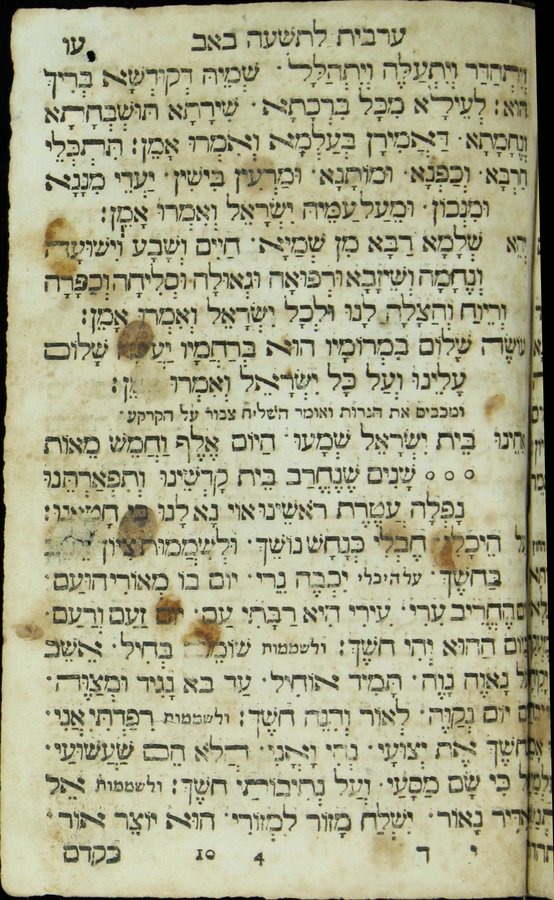 ערבית לתשעה באב עו
וְיִתְהַדַּר וְיִתְעַלֶּה וְיִתְהַלָּל׳ שְׁמֵיהּ דְקוּדְשָׁא בְּרִיךְ
הוּא: לְעֵילָא מִכָּל בִּרְכָתָא׳ שִׁירָתָא תּוּשְׁבְּחָתָא
וְנֶחָמָתָא׳ דַּאֲמִירָן בְּעָלְמָא וְאִמְרוּ אָמֵן: תִּתְכְּלֵי
חַרְבָּא׳ וְכַפְנָא׳ וּמוֹתָנָא׳ וּמַרְעִין בִּישִׁין׳ יַעְדֵּי מִנָּנָא
וּמִנְכוֹן׳ וּמֵעַל עַמֵּיהּ יִשְׂרָאֵל וְאִמְרוּ אָמֵן:
יְהֵא שְׁלָמָא רַבָּא מִן שְׁמַיָּא׳ חַיִּים וְשָׂבָע וִישׁוּעָה
וְנֶחָמָה וְשֵׁיזָבָא וּרְפוּאָה וּגְאוּלָה וּסְלִיחָה וְכַפָּרָה
וְרֵיוַח וְהַצָּלָה לָנוּ וּלְכָל יִשְׂרָאֵל וְאִמְרוּ אָמֵן:
עוֹשֶׂה שָׁלוֹם בִּמְרוֹמָיו הוּא בְּרַחֲמָיו יַעֲשֶׂה שָׁלוֹם
עָלֵינוּ וְעַל כָּל יִשְׂרָאֵל וְאִמְרוּ
ומכבים את הנרות ואומר השליח צבור על הקרקע׳
אַחֵינוּ בֵּית יִשְׂרָאֵל שְׁמָעוּ׳ הַיּוֹם אֶלֶף וַחֲמֵשׁ מֵאוֹת
ים שָׁנִים שֶׁנֶּחֱרַב בֵּית קָדְשֵׁינוּ וְתִפְאַרְתֵּנוּ
נָפְלָה עֲטֶרֶת רֹאשֵׁינוּ אוֹי נָא לָנוּ כִּי חָטָאנוּ:
עַל הֵיכָלִי׳ חֶבְלִי כְּנָחָשׁ נוֹשֵׁךְ׳ וּלְשׁוֹמְמוּת צִיּוֹן
בַּחֹשֶׁךְ׳ על היכלי יִכְבֶּה נֵרִי׳ יוֹם בּוֹ מְאוֹרִי הוּעַם׳
הֶחֱרִיב עָרַי׳ עִירִי הִיא רַבָּתִי עָם׳ יוֹם זַעַם וְרַעַם׳
הַיּוֹם הַהוּא יְהִי חֹשֶׁךְ: ולשממות שׁוֹמֵם בְּחִיל׳ אֵשֵׁב
נָאוָה נָוֶה׳ תָּמִיד אוֹחִיל׳ עַד בֹּא נָגִיד וּמְצַוֶּה׳
יוֹם נְקַוֶּה׳ לְאוֹר וְהִנֵּה חֹשֶׁךְ: ולשממות רִפַּדְתִּי אֲנִי׳
בַּחֹשֶׁךְ אֶת יְצוּעָי׳ וַאֲנִי׳ הֲלֹא הֵם שַׁעֲשׁוּעָי׳
כִּי שָׂם מַסָּעַי׳ וְעַל נְתִיבוֹתַי חֹשֶׁךְ: ולשממות אֵל
אַדִּיר נָאוֹר׳ יִשְׁלַח מָזוֹר לִמְזוֹרִי׳ הוּא יוֹצֵר אוֹר׳
י ד 4 10 בקדם